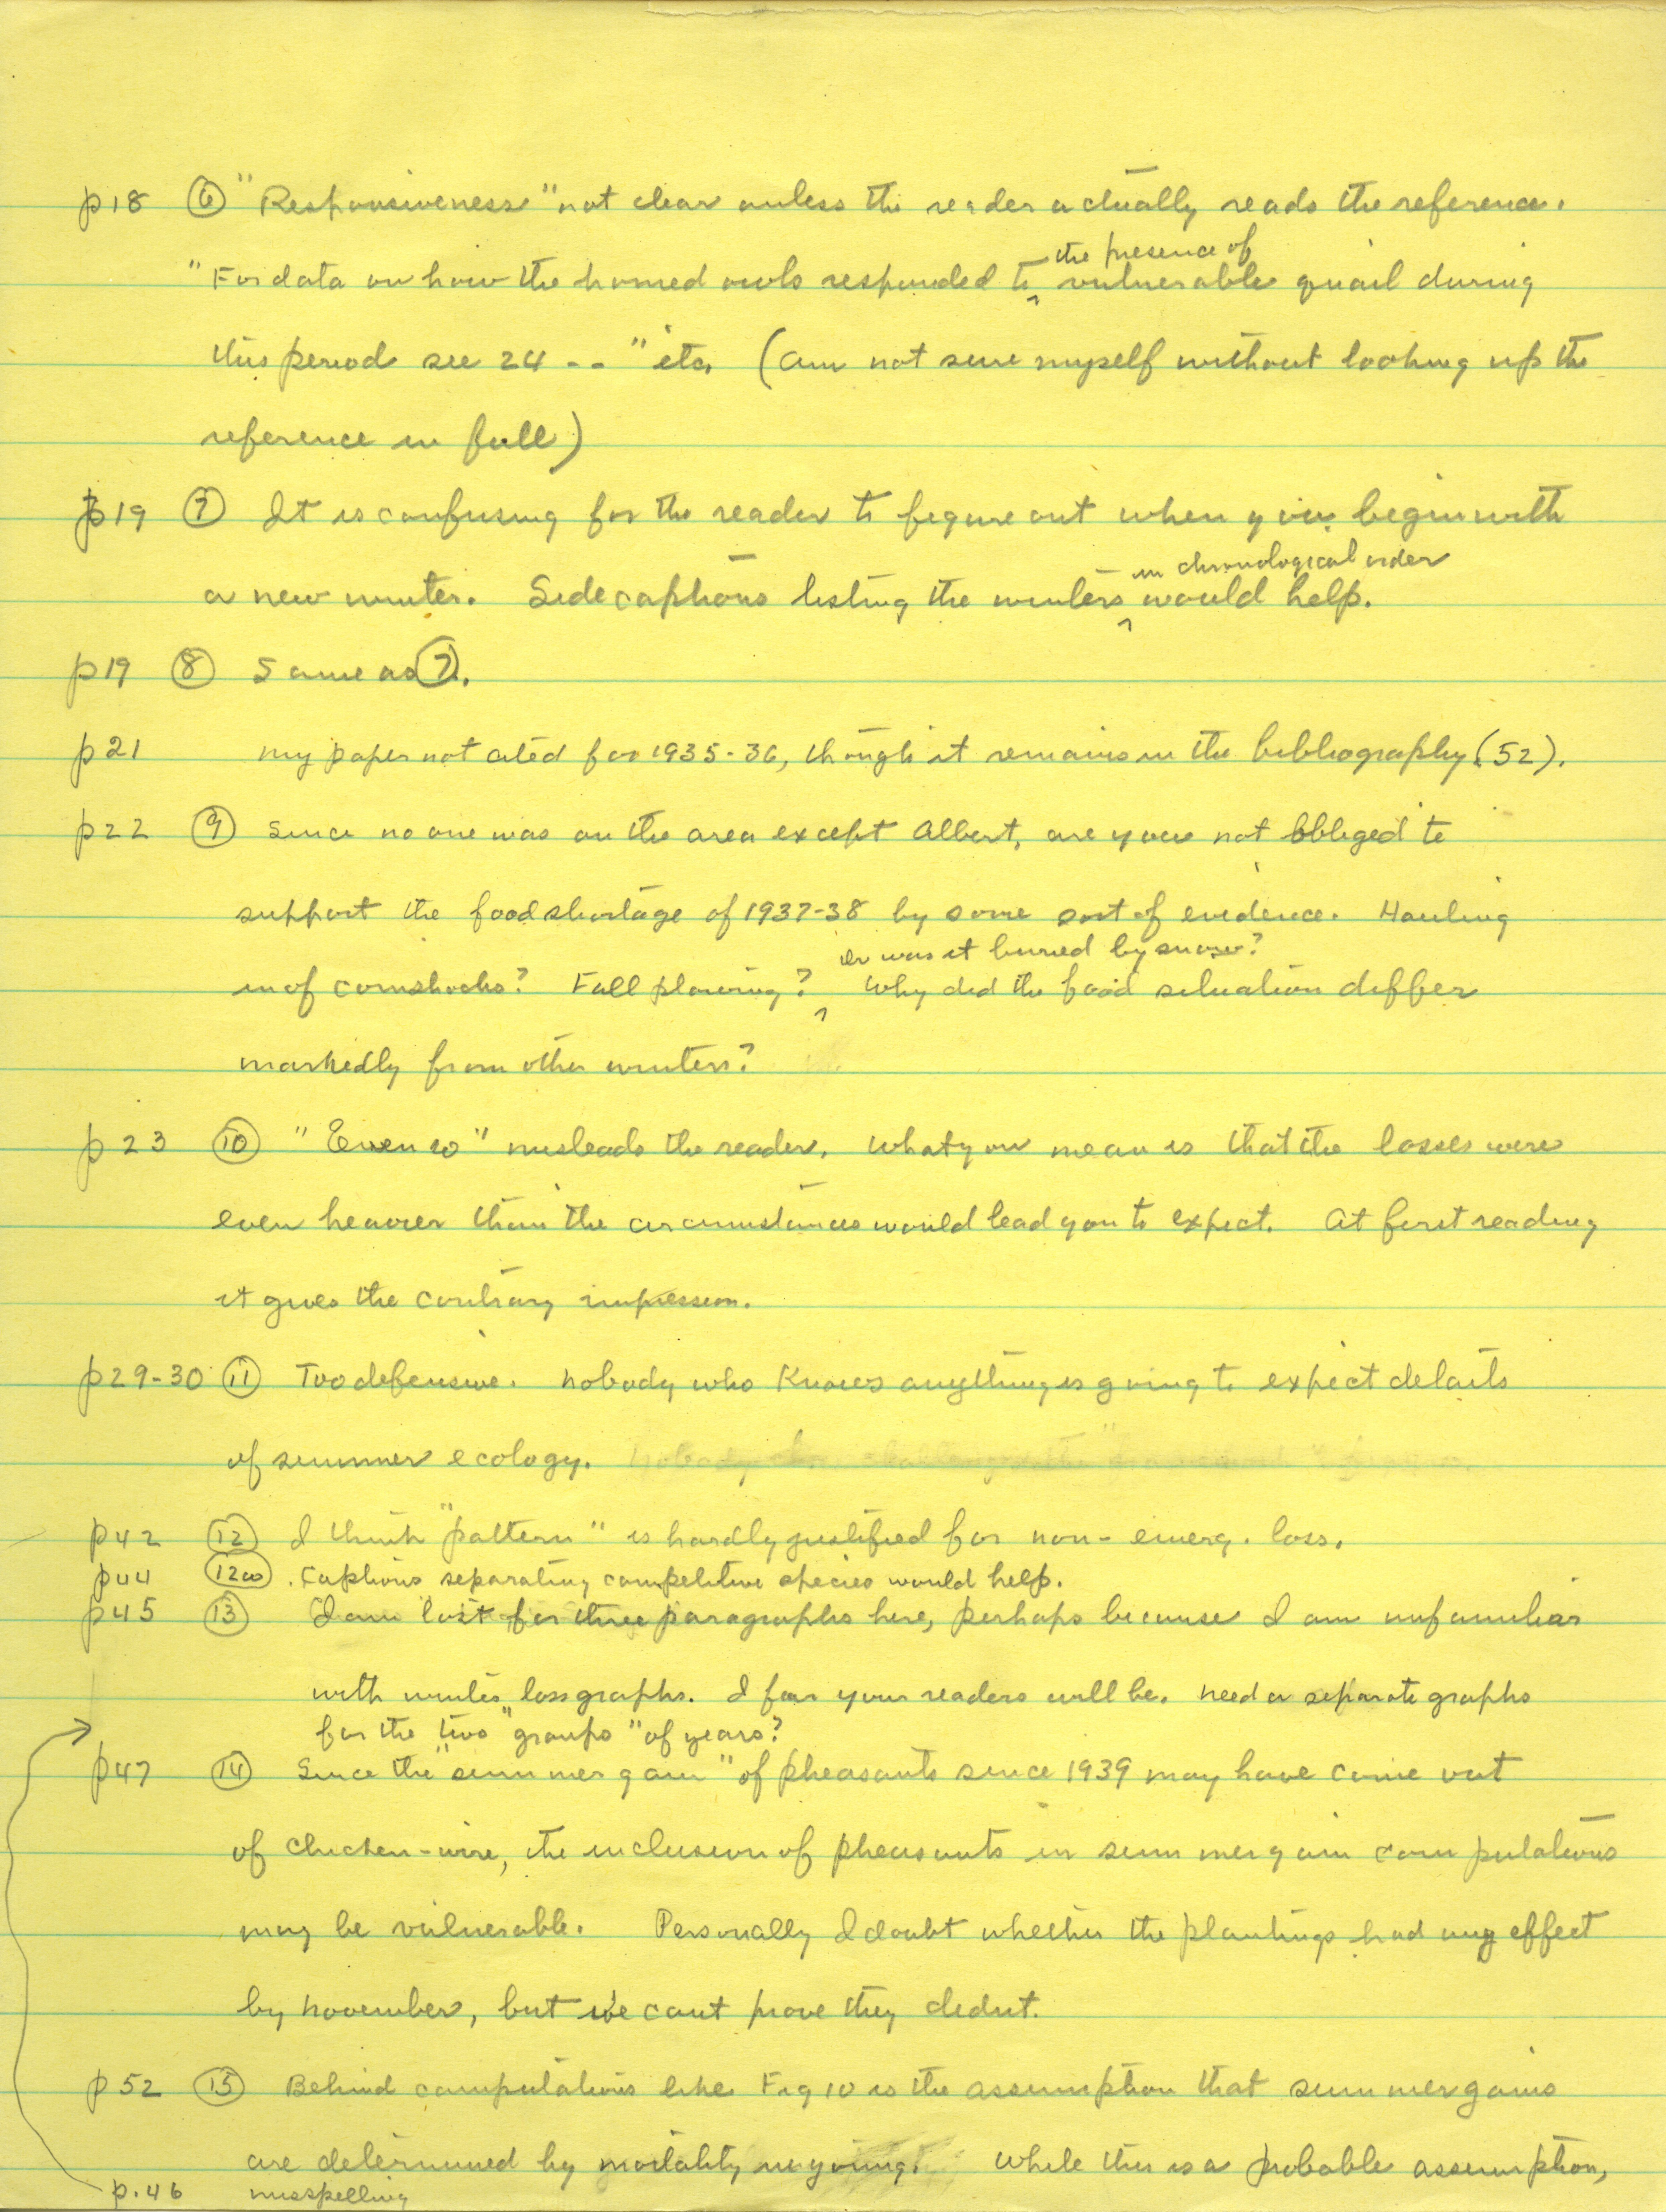 p18 ⑥ "Responsiveness" not clear unless the reader actually reads the reference.
the presence of
"For data on how the horned owls responded to ^ vulnerable quail during
this period see 24 -- " etc. (Am not sure myself without looking up the
reference in full)
p19 ⑦ It is confusing for the reader to figure out when you begin with
in chronological order
a new winter. Side captions listing the winters ^ would help.
p19 ⑧ Same as ⑦.
p21 My paper not cited for 1935-36, though it remains in the bibliography (52).
p22 ⑨ Since no one was on the area except Albert, are you not obliged to
support the food shortage of 1937-38 by some sort of evidence. Hauling
or was it buried by snow?
in of cornshocks? Fall plowing? ^ Why did the food situation differ
markedly from other winters?
p23 ⑩ "Even so" misleads the reader. What you mean is that the losses were
even heavier than the circumstances would lead you to expect. At first reading
it gives the contrary impression.
p29-30 ⑪ Too defensive. Nobody who knows anything is going to expect details
of summer ecology.
p42 ⑫ I think "pattern" is hardly justified for non-emerg. loss.
p44 (12a) . Captions separating competitive species would help.
p45 ⑬ I am lost for three paragraphs here, perhaps because I am unfamiliar
with winter loss graphs. I fear your readers will be. Need a separate graphs
for the two "groups" of years?
p47 ⑭ Since the "summer gain" of pheasants since 1939 may have come out
of chicken-wire, the inclusion of pheasants in summer gain computations
may be vulnerable. Personally I doubt whether the plantings had any effect
by November, but we cant prove they didnt.
p52 ⑮ Behind computations like Fig 10 is the assumption that summer gains
are determined by mortality in young. While this is a probable assumption,
p.46 misspelling